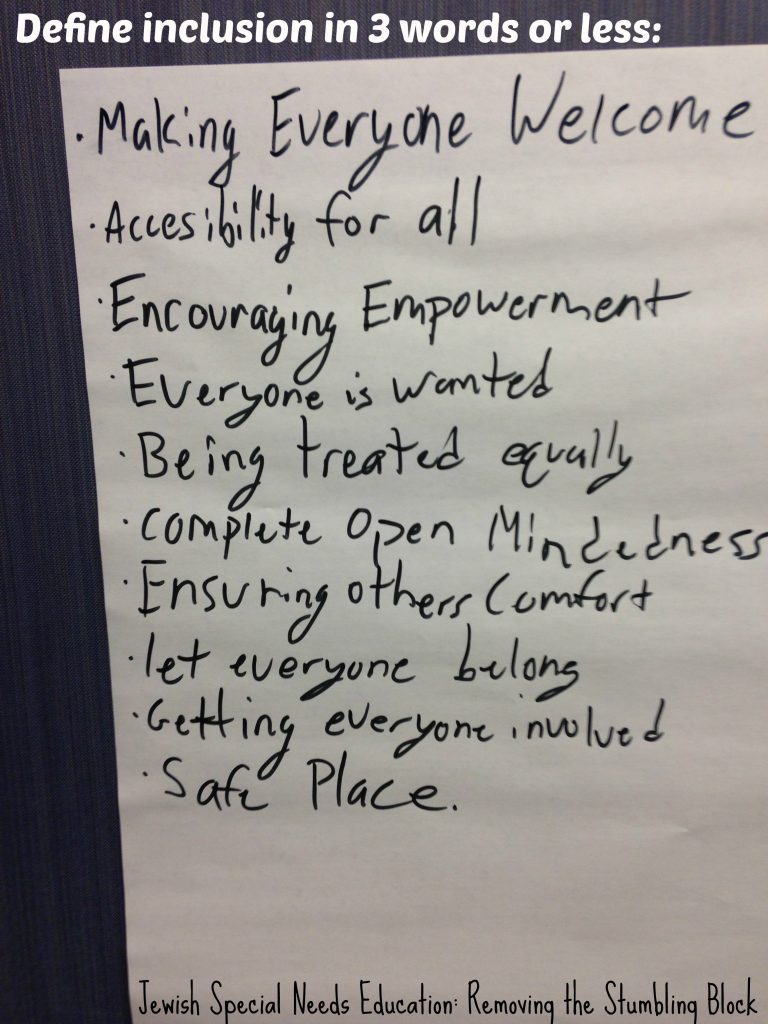 Define inclusion in 3 words or less:
· Making Everyone Welcome
· Accesibility for all
· Encouraging Empowerment
· Everyone is wanted
· Being treated equally
· Complete Open Mindedness
· Ensuring others Comfort
· let everyone belong
· Getting everyone involved
· Safe Place.
Jewish Special Needs Education: Removing the Stumbling Block